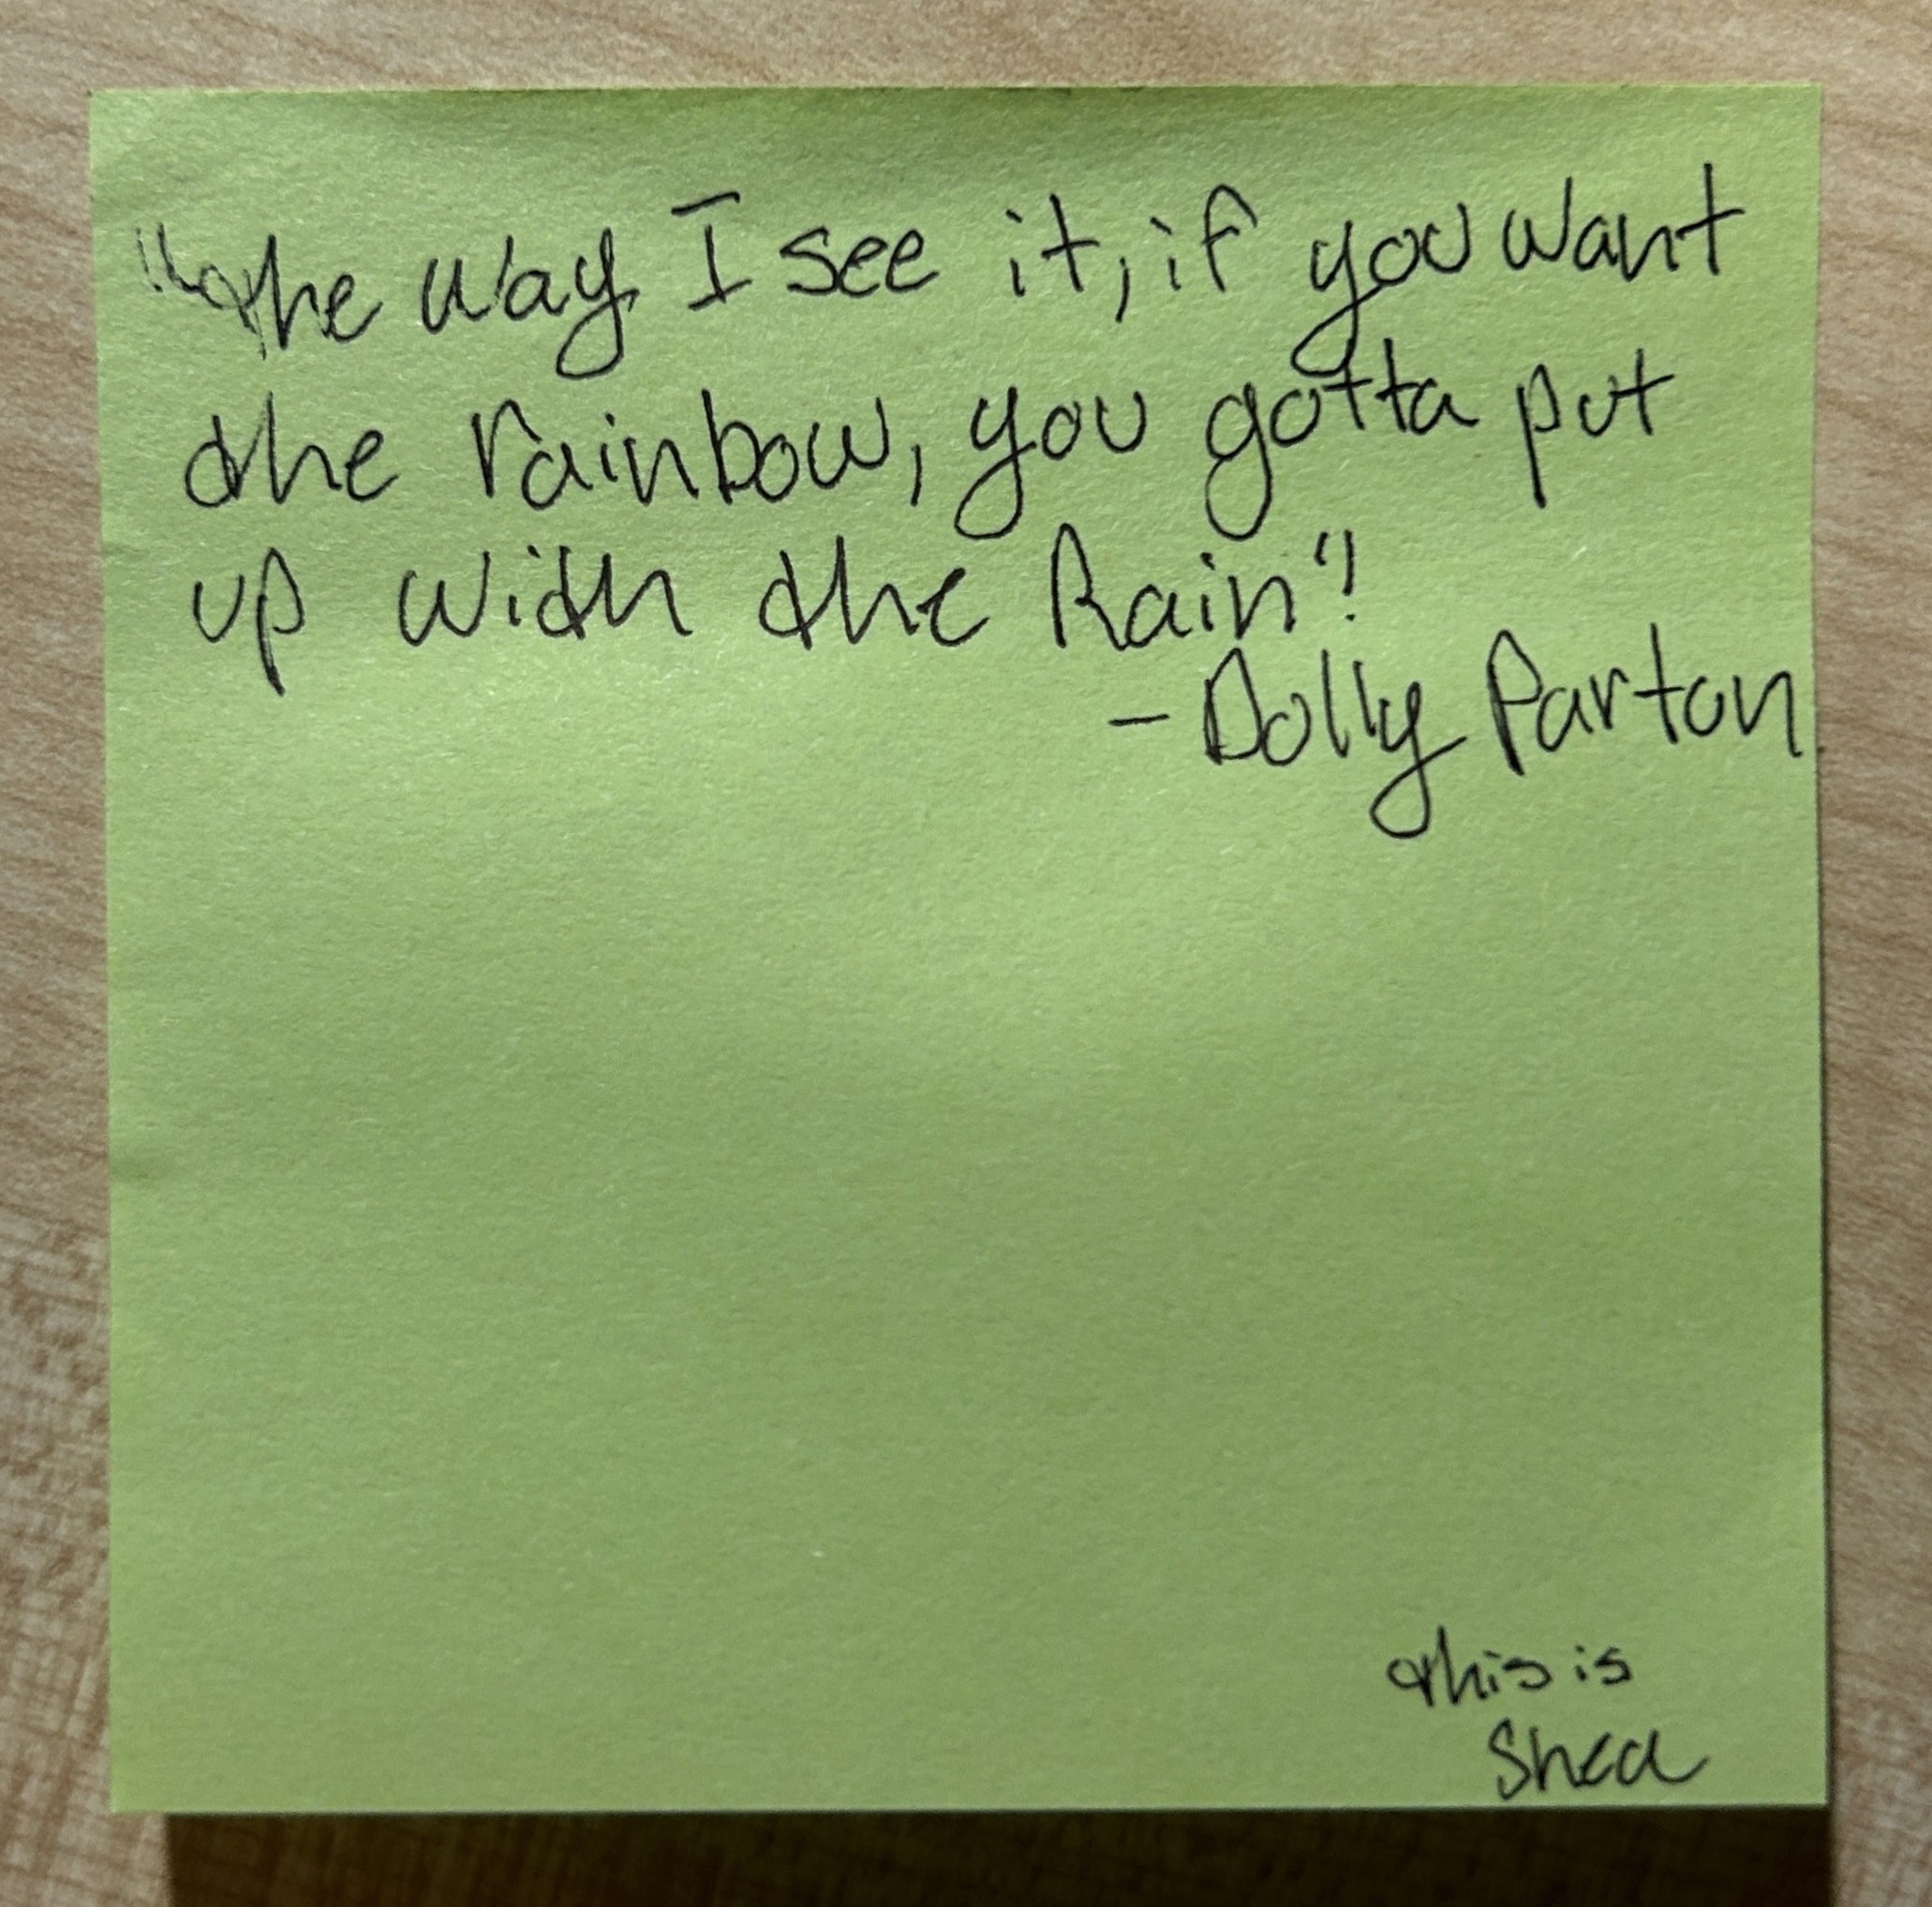 "the way I see it, if you want
the rainbow, you gotta put
up with the Rain"!
- Dolly Parton
this is
Shea